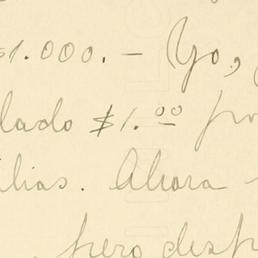 $1.000.- Yo,
lado $1.00 pro
ilias. Ahora -
pero desp